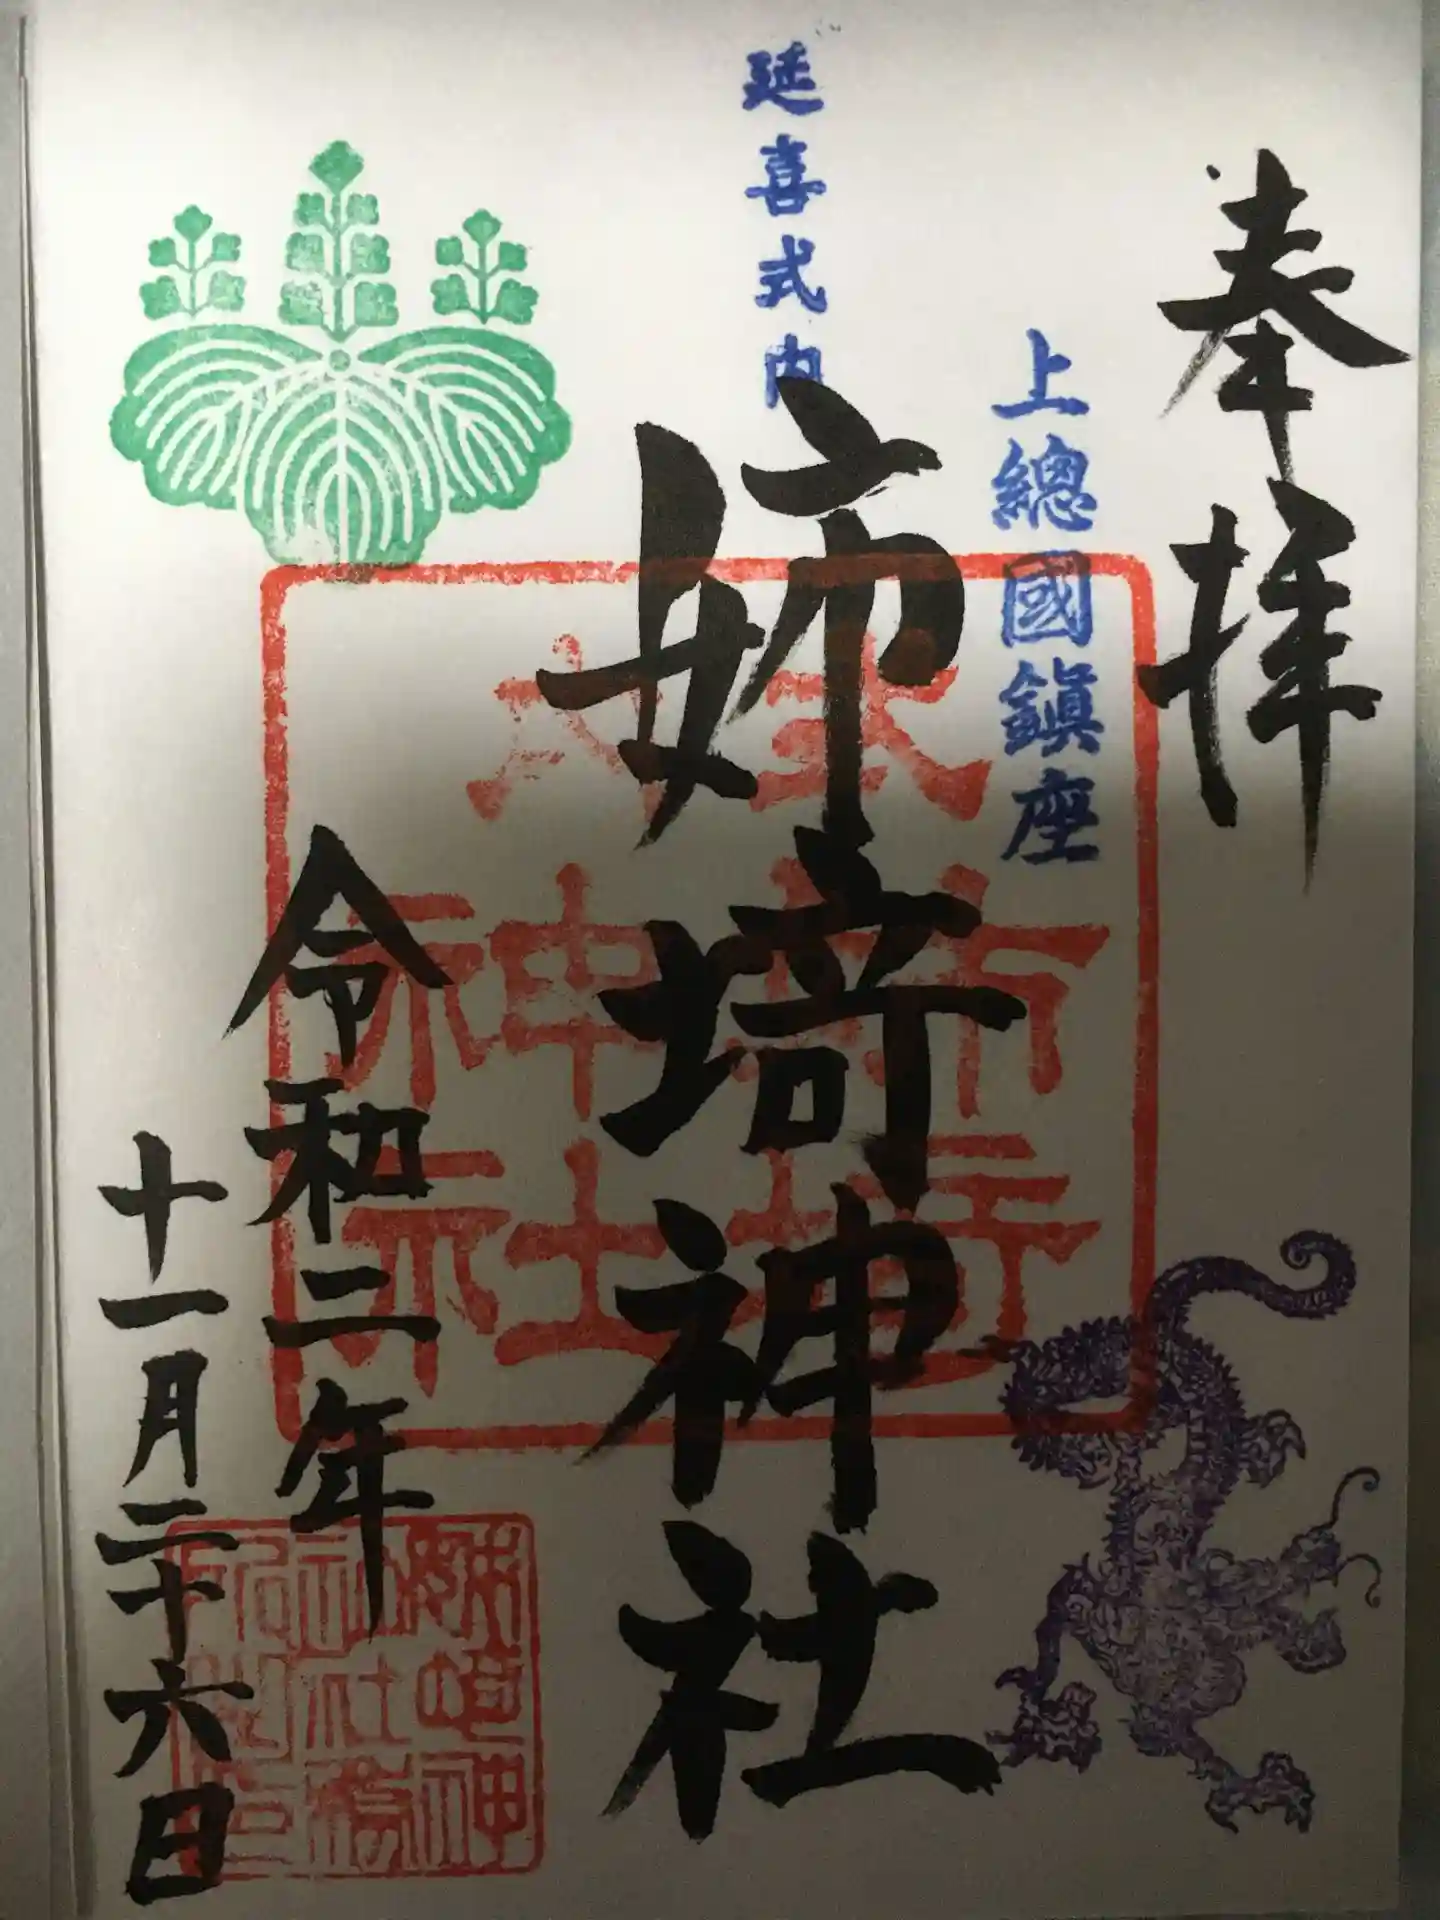 奉拝
上總國鎮座
延喜式内
姉埼神社
令和二年
十一月二十六日
姉埼神
社社務
所之印